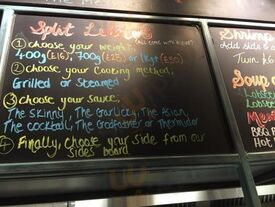 Split Lobsters
① choose your weight. (ALL COME WITH
400g (£16), 700g (£25) or 1kg+ (£50)
② choose your cooking method,
Grilled or Steamed
③ choose your sauce,
The Skinny, The Garlicky, The Asian,
The cocktail, The Godfather or Thermidor
④ Finally, choose your side from our
sides board
Shrimp
Add side
Twin
Soup
Lobster
Lobster
BBQ
Hot